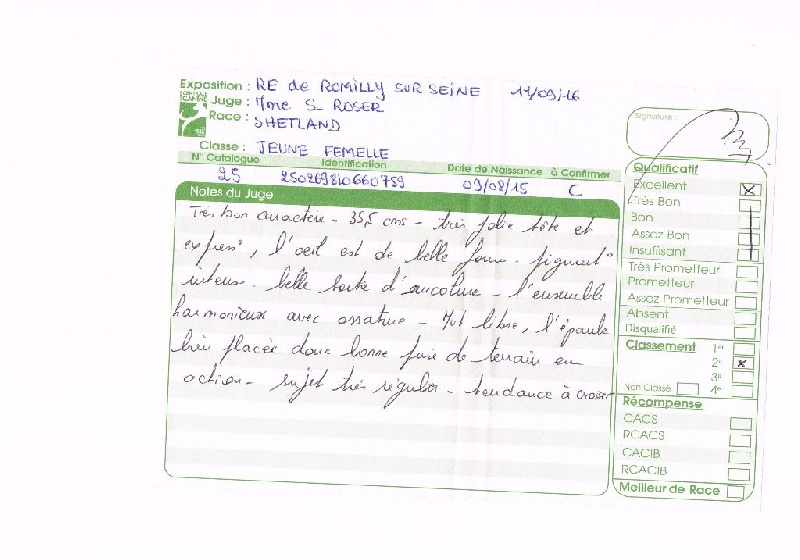 Exposition : RE de ROMILLY SUR SEINE 17/09/16
CENTRALE CANINE
Juge : Mme S ROSER
Race : SHETLAND
Signature :
Classe : JEUNE FEMELLE
N° Catalogue Identification Date de Naissance à Confirmer
25 250269810660759 09/08/15 C
Notes du Juge
Très bon caractère - 35,5 cms - très jolie tête et
express°, l'oeil est de belle forme. pigment°
intense. belle sortie d'encolure - l'ensemble
harmonieux avec ossature - Mvt libre, l'épaule
bien placée donc bonne prise de terrain en
action - sujet très régulier - tendance à croiser
Qualificatif
Excellent x
Très Bon
Bon
Assez Bon
Insuffisant
Très Prometteur
Prometteur
Assez Prometteur
Absent
Disqualifié
Classement 1er
2e x
3e
Non Classé 4e
Récompense
CACS
RCACS
CACIB
RCACIB
Meilleur de Race